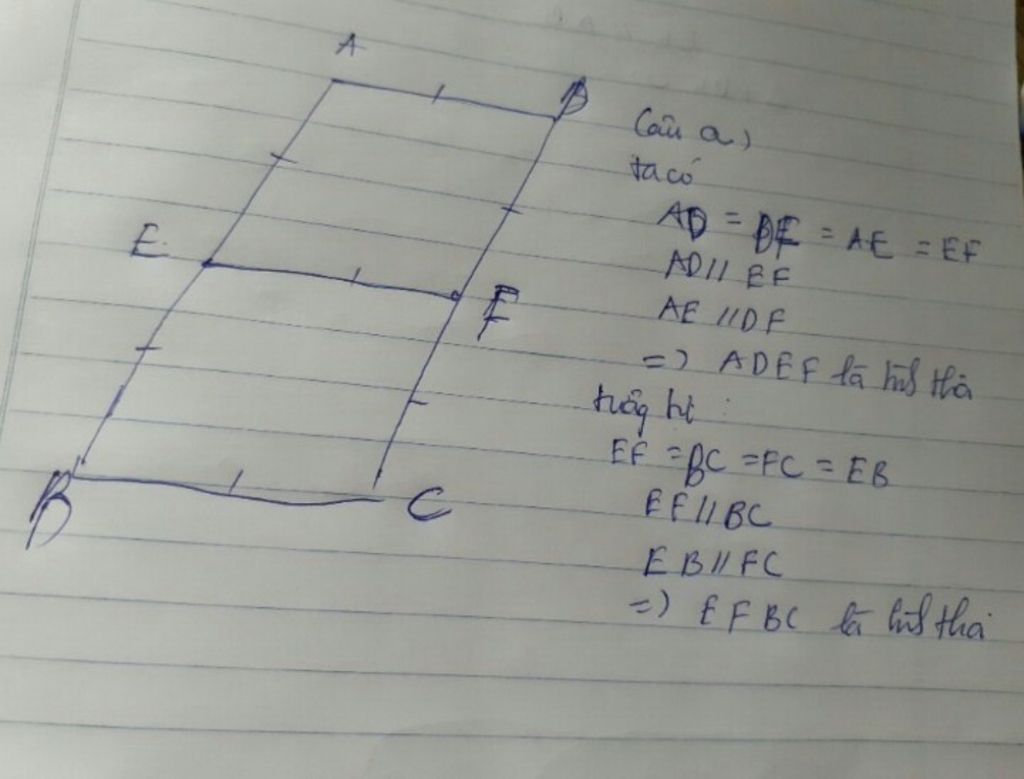 A
D
E
F
B
C
Câu a)
ta có
AD = DF = AE = EF
AD // EF
AE // DF
=> ADEF là hình thoi
tương tự :
EF = BC = FC = EB
EF // BC
EB // FC
=> EFBC là hình thoi